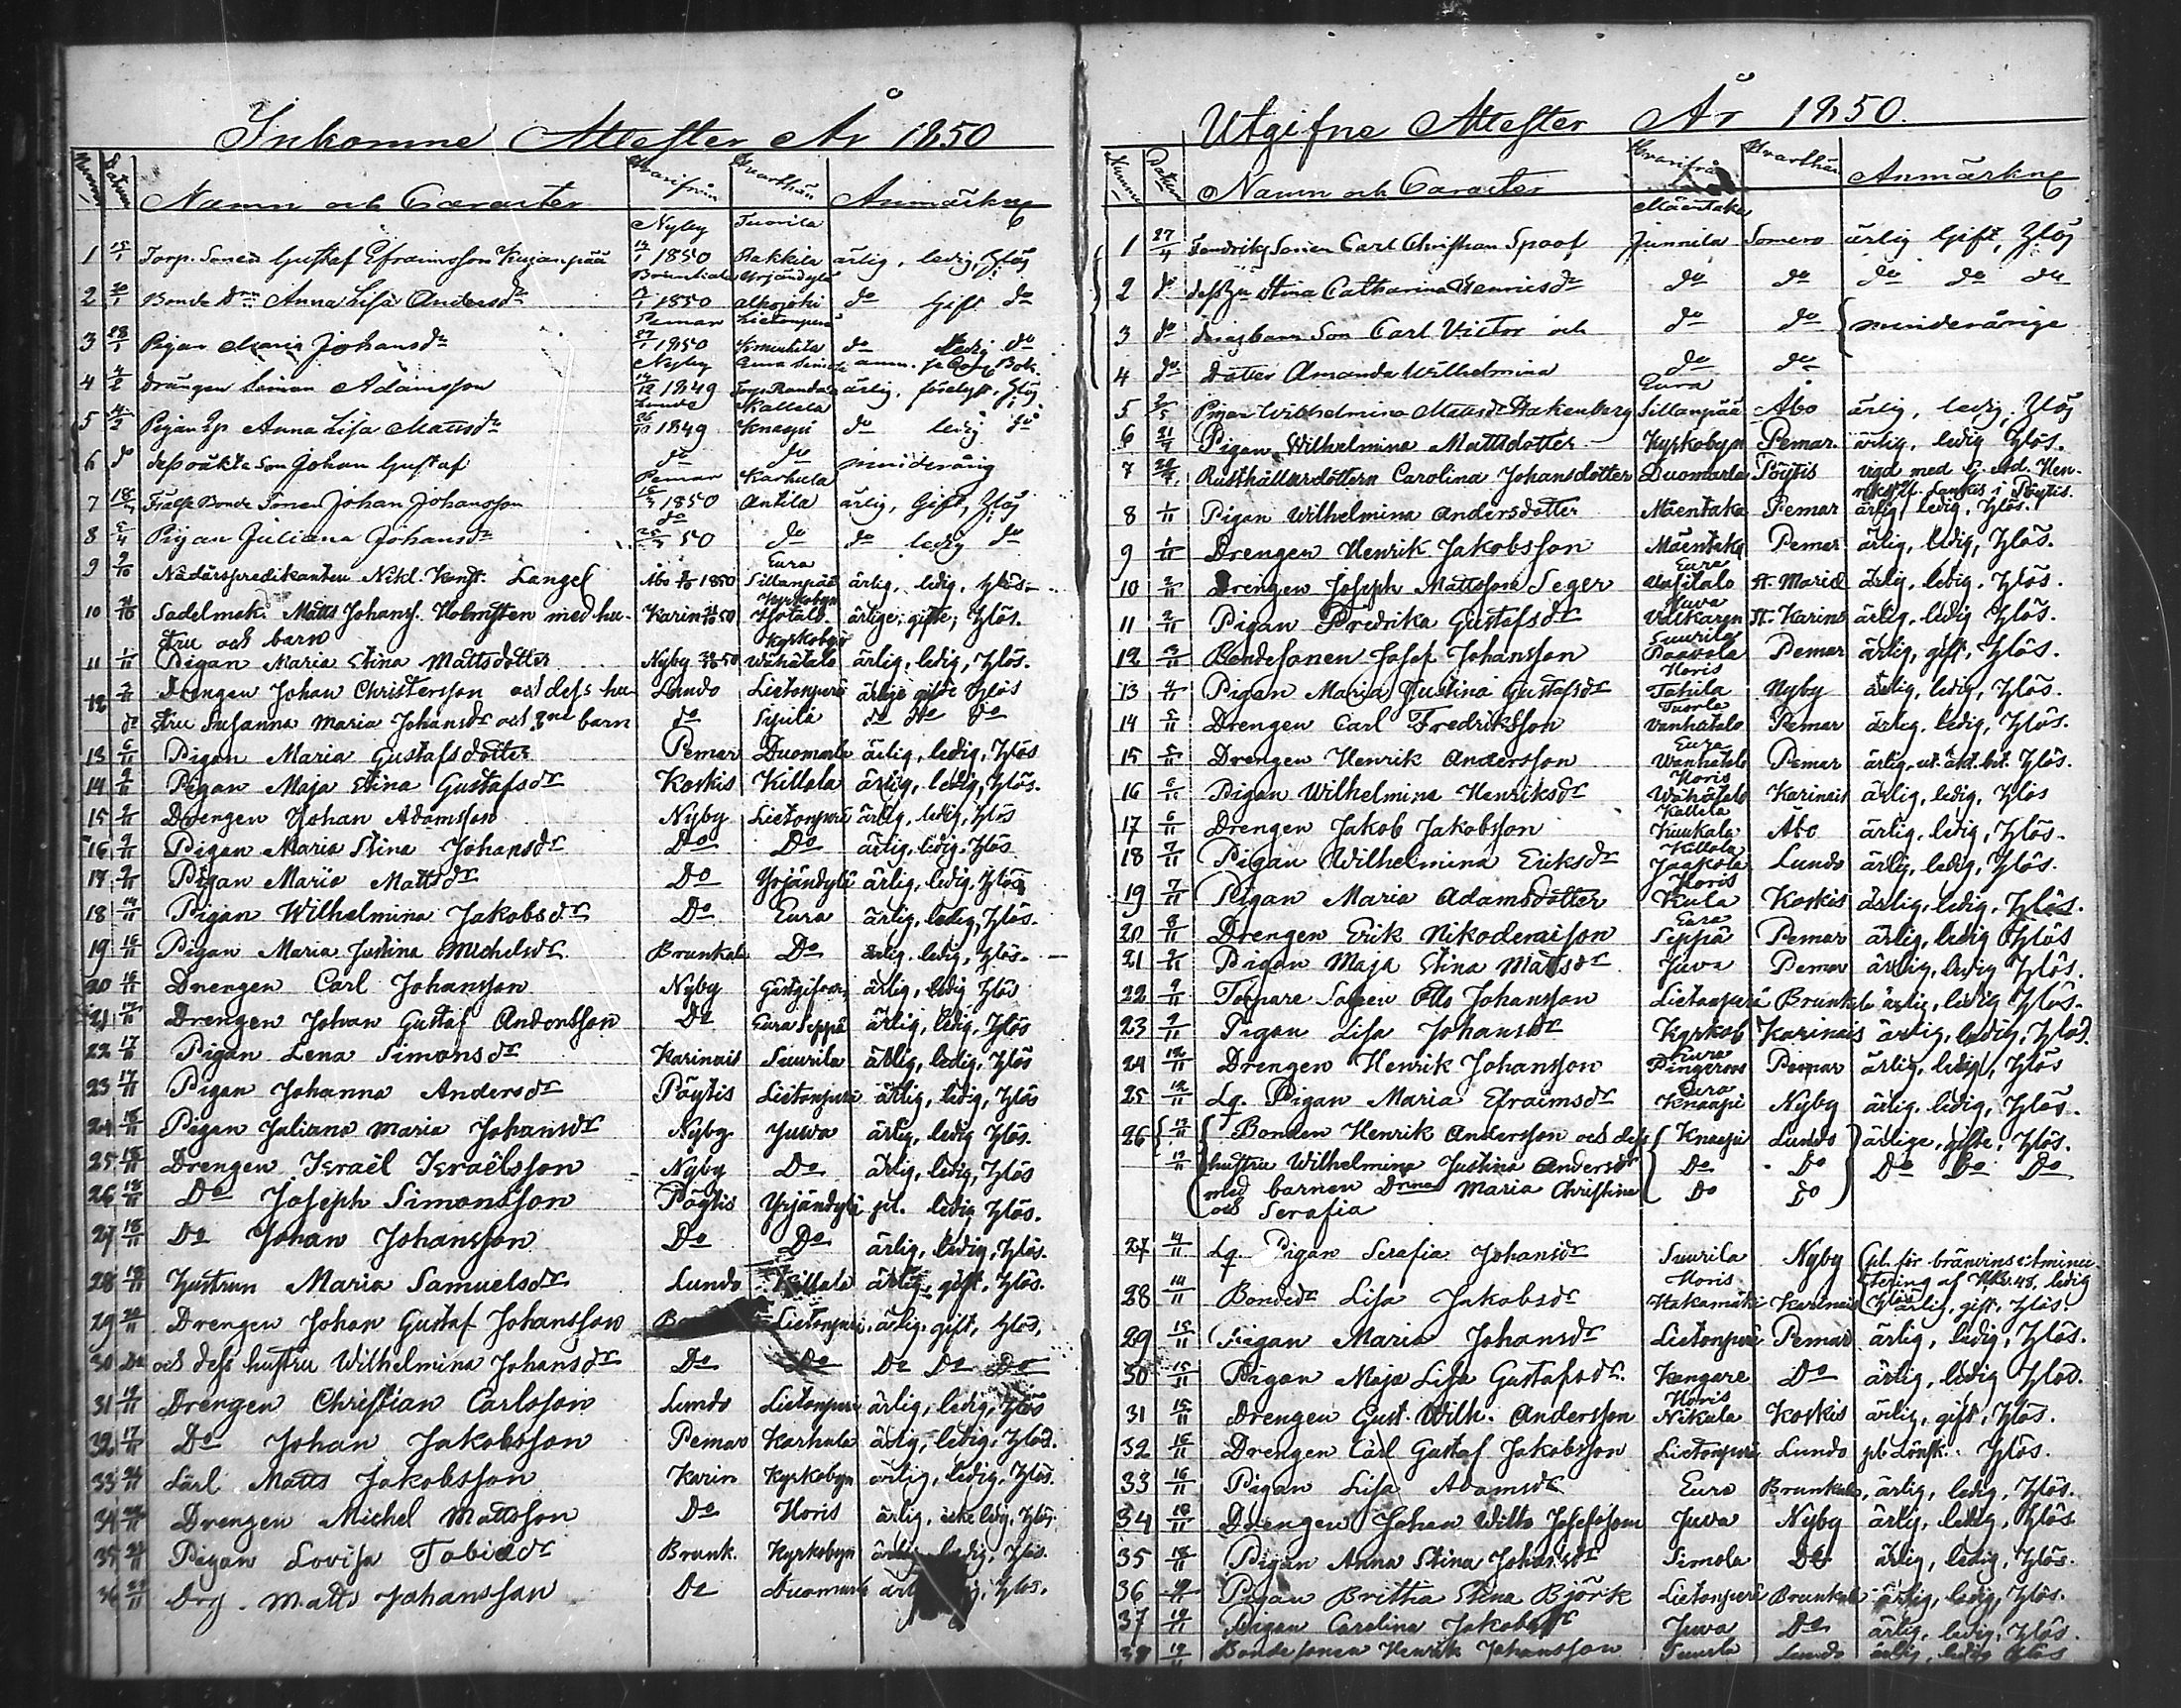 Inkomne Attester År 1850
Numer Datum Namn och Caracter Hvarifrån Hvarthän Anmärkng
Nyby Tuorila
1 15/1 Torp. Sonen Gustaf Efraimsson Kujanpää 14/1 1850 Rakkila ärlig, ledig, Hlös
Yrjändylä
2 20/1 Bonde Dn Anna Lisa Andersdr 1850 do Gift do
Pemar Lietonperä
3 28/1 Pigan Maria Johansdr 27/1 1850 do ledig do
Nyby
4 4/2 drängen Simon Adamsson 1849 ärlig, Hlös
Lundo Kallela
5 Pigan Anna Lisa Mattsdr 1849 Knaapi do ledig do
6 do dess oäkta Son Johan Gustaf do do minderårig
Pemar Karhula
7 Frälse Bonde Sonen Johan Johansson 1850 Antila ärlig, Gift, Hlös
do
8 Pigan Juliana Johansdr 50 do do ledig do
Eura
9 9/10 Nådårspredikanten Nikl. Konst. Langel Åbo 1850 Sillanpää ärlig, ledig, Hlös
Kyrkobyn
10 Sadelmak. Matts Johanss. Holmsten med hu- Karin 50 ärlige, gifte, Hlös.
stru och barn Kyrkobyn
11 1/11 Pigan Maria Stina Mattsdotter Nyby 50 Wähätalo ärlig, ledig, Hlös.
12 2/11 Drengen Johan Christersson och dess hu- Lundo Lietonperä ärlige gifte Hlös
do stru Susanna Maria Johansdr och barn do Sipilä do do do
13 6/11 Pigan Maria Gustafsdotter Pemar Duomarla ärlig, ledig, Hlös
14 9/11 Pigan Maja Stina Gustafsdr Koskis Killala ärlig, ledig, Hlös.
15 9/11 Drengen Johan Adamsson Nyby Lietonperä ärlig, ledig, Hlös
16 9/11 Pigan Maria Stina Johansdr Do Do ärlig, ledig, Hlös
17 9/11 Pigan Maria Mattsdr Do Yrjändylä ärlig, ledig, Hlös
18 14/11 Pigan Wilhelmina Jakobsdr Do Eura ärlig, ledig, Hlös.
19 16/11 Pigan Maria Justina Michelsdr Brunkala Do ärlig, ledig, Hlös.
20 16/11 Drengen Carl Johansson Nyby ärlig, ledig Hlös
21 17/11 Drengen Johan Gustaf Andersson Do Eura Seppä ärlig, ledig, Hlös
22 17/11 Pigan Lena Simonsdr Karinais Suurila ärlig, ledig, Hlös
23 17/11 Pigan Johanna Andersdr Pöytis Lietonperä ärlig, ledig, Hlös
24 18/11 Pigan Juliana Maria Johansdr Nyby Juwa ärlig, ledig Hlös.
25 18/11 Drengen Israël Israëlsson Nyby Do ärlig, ledig, Hlös
26 18/11 Do Joseph Simonsson Pöytis Yrjändylä pl. ledig Hlös.
27 18/11 Do Johan Johansson Do Do ärlig, ledig, Hlös.
28 18/11 Hustrun Maria Samuelsdr Lundo Killala ärlig, gift, Hlös.
29 Drengen Johan Gustaf Johansson Lietonperä ärlig, gift, Hlös,
30 Do och dess hustru Wilhelmina Johansdr Do Do Do Do Do
31 19/11 Drengen Christian Carlsson Lundo Lietonperä ärlig, ledig, Hlös
32 17/11 Do Johan Jakobsson Pemar Karhula ärlig, ledig, Hlös.
33 Lärl Matts Jakobsson Karin Kyrkobyn ärlig, ledig, Hlös.
34 Drengen Michel Mattsson Do Horis ärlig, icke ledig, Hlös
35 Pigan Lovisa Tobiædr Brunk. Kyrkobyn ärlig, ledig, Hlös
36 Drg. Matts Johansson Do Duomarla Hlös.
Utgifne Attester År 1850.
Numer Datum Namn och Caracter Hvarifrån Hvarthän Anmärkng
Mäentaka
1 27/4 Fendriks Sonen Carl Christian Spoof Junnila Somero ärlig Gift, Hlös
2 do dess Hu Stina Catharina Henricsdr do do do do do
3 do deras barn Son Carl Victor och do do minderårige
4 do Dotter Amanda Wilhelmina do do
Eura
5 2/5 Pigan Wilhelmina Mattsdr Hakenberg Sillanpää Åbo ärlig, ledig, Hlös
6 Pigan Wilhelmina Mattsdotter Kyrkobyn Pemar. ärlig, ledig Hlös.
7 Rusthållardottern Carolina Johansdotter Duomarla Pöytis vigd med Hen-
i Pöytis.
8 1/11 Pigan Wilhelmina Andersdotter Mäentaka Pemar ärlig, ledig, Hlös.
9 1/11 Drengen Henrik Jakobsson Mäentaka Pemar ärlig, ledig, Hlös.
Eura
10 2/11 Drengen Joseph Mattsson Seger Uusitalo St. Marie ärlig, ledig, Hlös.
Juva
11 2/11 Pigan Fredrika Gustafsdr St. Karins ärlig, ledig Hlös.
Suurila
12 3/11 Bondesonen Josef Johansson Paavola Pemar ärlig, gift, Hlös.
Horis
13 4/11 Pigan Maria Justina Gustafsdr Tahila Nyby ärlig, ledig, Hlös.
Tuorla
14 5/11 Drengen Carl Fredriksson Vanhatalo Pemar ärlig, ledig, Hlös.
Eura
15 5/11 Drengen Henrik Andersson Wanhatalo Pemar ärlig, Hlös.
Horis
16 6/11 Pigan Wilhelmina Henriksdr Wähätalo Karinais ärlig, ledig, Hlös
Kallela
17 6/11 Drengen Jakob Jakobsson Kuukala Åbo ärlig, ledig, Hlös.
Killala
18 7/11 Pigan Wilhelmina Eriksdr Jaakola Lundo ärlig, ledig, Hlös.
Horis
19 7/11 Pigan Maria Adamsdotter Kula Koskis ärlig, ledig, Hlös.
Eura
20 8/11 Drengen Erik Nikodemisson Seppä Pemar ärlig, ledig Hlös
21 9/11 Pigan Maja Stina Matsdr Juva Pemar ärlig, ledig Hlös.
22 9/11 Torpare Sonen Otto Johansson Lietonperä Brunkala ärlig, ledig Hlös.
23 9/11 Pigan Lisa Johansdr Kyrkob Karinais ärlig, ledig, Hlös.
Eura
24 12/11 Drengen Henrik Johansson Pemar ärlig, ledig, Hlös
Eura
25 12/11 Lq. Pigan Maria Efraimsdr Knaapi Nyby ärlig, ledig, Hlös.
26 13/11 Bonden Henrik Andersson och dess Knaapi Lundo ärlige, gifte, Hlös.
13/11 hustru Wilhelmina Justina Andersdr Do Do Do Do Do
med barnen Maria Christina Do Do
och Serafia
27 14/11 Lq Pigan Serafia Johansdr Suurila Nyby pl. för bränvins
Horis af 48, ledig
28 14/11 Bondedr Lisa Jakobsdr Hakamäki Karinais ärlig, gift, Hlös.
29 15/11 Pigan Maria Johansdr Lietonperä Pemar ärlig, ledig, Hlös.
30 15/11 Pigan Maja Lisa Gustafsdr. Kangare Do ärlig, ledig Hlös.
Horis
31 15/11 Drengen Gust. Wilh. Andersson Nikula Koskis ärlig, gift, Hlös.
32 16/11 Drengen Carl Gustaf Jakobsson Lietonperä Lundo pl. Hlös.
33 16/11 Pigan Lisa Adamsdr Eura Brunkala, ärlig, ledig, Hlös.
34 18/11 Drengen Johan Wilh Josefsson Juva Nyby ärlig, ledig, Hlös.
35 18/11 Pigan Anna Stina Johansdr Simola Do ärlig, ledig, Hlös.
36 Pigan Brittia Stina Björk Lietonperä Brunkala ärlig, ledig, Hlös.
37 19/11 Pigan Carolina Jakobsdr Juva Do ärlig, ledig, Hlös.
38 19/11 Bondesonen Henrik Johansson Tuorla Lundo ärlig, ledig Hlös